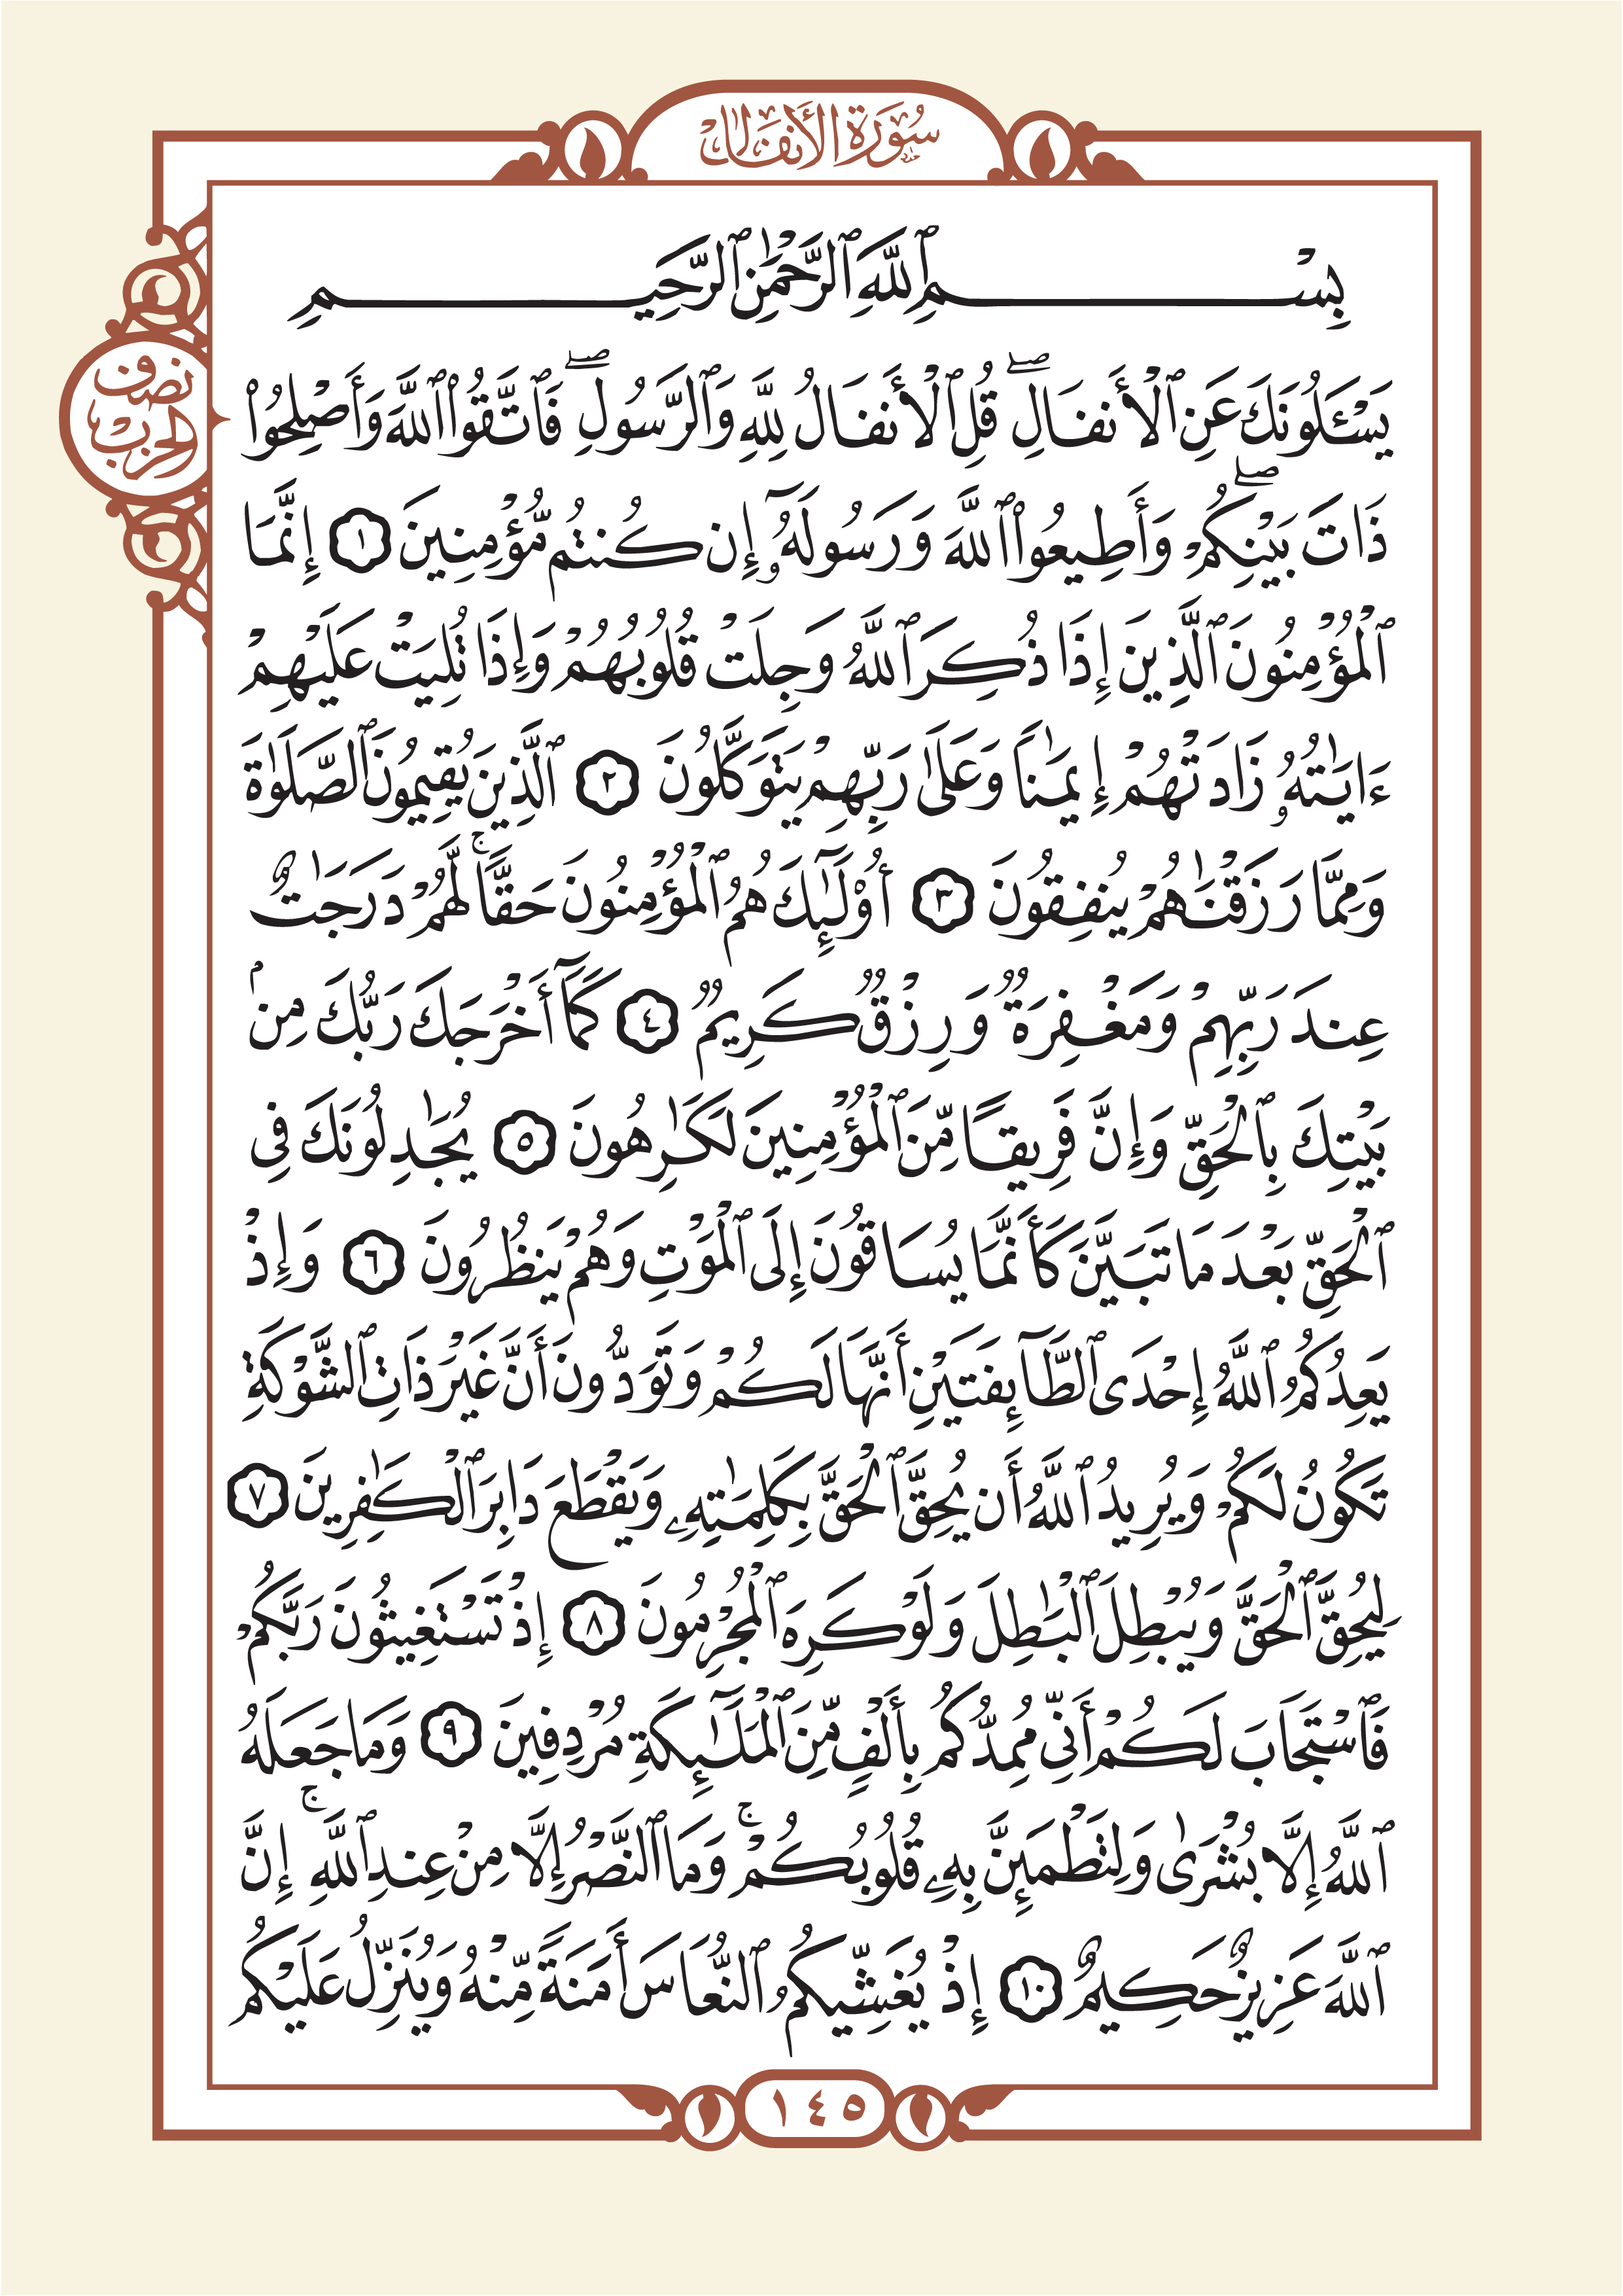 سُورَةُ الأَنفَالِ
بِسْمِ ٱللَّهِ ٱلرَّحْمَٰنِ ٱلرَّحِيمِ
نصف
الحزب
يَسْـَٔلُونَكَ عَنِ ٱلْأَنفَالِۖ قُلِ ٱلْأَنفَالُ لِلَّهِ وَٱلرَّسُولِۖ فَٱتَّقُوا۟ ٱللَّهَ وَأَصْلِحُوا۟
ذَاتَ بَيْنِكُمْۖ وَأَطِيعُوا۟ ٱللَّهَ وَرَسُولَهُۥٓ إِن كُنتُم مُّؤْمِنِينَ ١ إِنَّمَا
ٱلْمُؤْمِنُونَ ٱلَّذِينَ إِذَا ذُكِرَ ٱللَّهُ وَجِلَتْ قُلُوبُهُمْ وَإِذَا تُلِيَتْ عَلَيْهِمْ
ءَايَٰتُهُۥ زَادَتْهُمْ إِيمَٰنًا وَعَلَىٰ رَبِّهِمْ يَتَوَكَّلُونَ ٢ ٱلَّذِينَ يُقِيمُونَ ٱلصَّلَوٰةَ
وَمِمَّا رَزَقْنَٰهُمْ يُنفِقُونَ ٣ أُو۟لَٰٓئِكَ هُمُ ٱلْمُؤْمِنُونَ حَقًّاۚ لَّهُمْ دَرَجَٰتٌ
عِندَ رَبِّهِمْ وَمَغْفِرَةٌ وَرِزْقٌ كَرِيمٌ ٤ كَمَآ أَخْرَجَكَ رَبُّكَ مِنۢ
بَيْتِكَ بِٱلْحَقِّ وَإِنَّ فَرِيقًا مِّنَ ٱلْمُؤْمِنِينَ لَكَٰرِهُونَ ٥ يُجَٰدِلُونَكَ فِى
ٱلْحَقِّ بَعْدَ مَا تَبَيَّنَ كَأَنَّمَا يُسَاقُونَ إِلَى ٱلْمَوْتِ وَهُمْ يَنظُرُونَ ٦ وَإِذْ
يَعِدُكُمُ ٱللَّهُ إِحْدَى ٱلطَّآئِفَتَيْنِ أَنَّهَا لَكُمْ وَتَوَدُّونَ أَنَّ غَيْرَ ذَاتِ ٱلشَّوْكَةِ
تَكُونُ لَكُمْ وَيُرِيدُ ٱللَّهُ أَن يُحِقَّ ٱلْحَقَّ بِكَلِمَٰتِهِۦ وَيَقْطَعَ دَابِرَ ٱلْكَٰفِرِينَ ٧
لِيُحِقَّ ٱلْحَقَّ وَيُبْطِلَ ٱلْبَٰطِلَ وَلَوْ كَرِهَ ٱلْمُجْرِمُونَ ٨ إِذْ تَسْتَغِيثُونَ رَبَّكُمْ
فَٱسْتَجَابَ لَكُمْ أَنِّى مُمِدُّكُم بِأَلْفٍ مِّنَ ٱلْمَلَٰٓئِكَةِ مُرْدِفِينَ ٩ وَمَا جَعَلَهُ
ٱللَّهُ إِلَّا بُشْرَىٰ وَلِتَطْمَئِنَّ بِهِۦ قُلُوبُكُمْۚ وَمَا ٱلنَّصْرُ إِلَّا مِنْ عِندِ ٱللَّهِۚ إِنَّ
ٱللَّهَ عَزِيزٌ حَكِيمٌ ١٠ إِذْ يُغَشِّيكُمُ ٱلنُّعَاسَ أَمَنَةً مِّنْهُ وَيُنَزِّلُ عَلَيْكُم
١٤٥